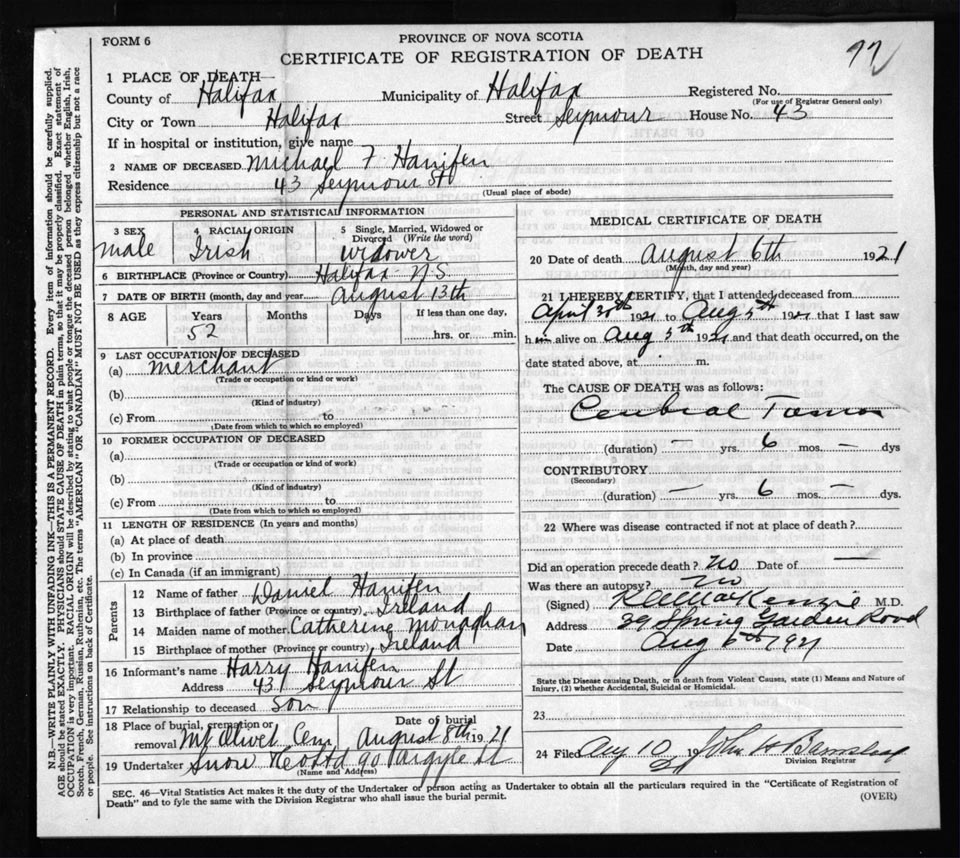 FORM 6
PROVINCE OF NOVA SCOTIA
CERTIFICATE OF REGISTRATION OF DEATH
1 PLACE OF DEATH
County of Halifax Municipality of Halifax Registered No.
(For use of Registrar General only)
City or Town Halifax Street Seymour House No. 43
If in hospital or institution, give name
2 NAME OF DECEASED Michael F Hanifen
Residence 43 Seymour St
(Usual place of abode)
PERSONAL AND STATISTICAL INFORMATION
3 SEX 4 RACIAL ORIGIN 5 Single, Married, Widowed or Divorced (Write the word)
male Irish widower
6 BIRTHPLACE (Province or Country) Halifax N.S.
7 DATE OF BIRTH (month, day and year) August 13th
8 AGE Years Months Days If less than one day,
52 hrs. or min.
9 LAST OCCUPATION OF DECEASED
(a) merchant
(Trade or occupation or kind or work)
(b)
(Kind of industry)
(c) From to
(Date from which to which so employed)
10 FORMER OCCUPATION OF DECEASED
(a)
(Trade or occupation or kind of work)
(b)
(Kind of industry)
(c) From to
(Date from which to which so employed)
11 LENGTH OF RESIDENCE (In years and months)
(a) At place of death
(b) In province
(c) In Canada (if an immigrant)
Parents
12 Name of father Daniel Hanifen
13 Birthplace of father (Province or country) Ireland
14 Maiden name of mother Catherine Monaghan
15 Birthplace of mother (Province or country) Ireland
16 Informant's name Harry Hanifen
Address 43 Seymour St
17 Relationship to deceased son
18 Place of burial, cremation or removal Mt Olivet Cem Date of burial August 8th 1921
19 Undertaker Snow & Co Ltd 90 Argyle St
(Name and Address)
MEDICAL CERTIFICATE OF DEATH
20 Date of death August 6th 1921
(Month, day and year)
21 I HEREBY CERTIFY, that I attended deceased from
April 30th 1921 to Aug 5th 1921 that I last saw
him alive on Aug 5th 1921 and that death occurred, on the
date stated above, at m.
The CAUSE OF DEATH was as follows:
Cerebral Tumor
(duration) — yrs. 6 mos. — dys
CONTRIBUTORY
(Secondary)
(duration) — yrs. 6 mos. — dys.
22 Where was disease contracted if not at place of death?
Did an operation precede death? No Date of —
Was there an autopsy? No
(Signed) MacKenzie M.D.
Address 29 Spring Garden Road
Date Aug 6th 1921
State the Disease causing Death, or in death from Violent Causes, state (1) Means and Nature of
Injury, (2) whether Accidental, Suicidal or Homicidal.
23
24 Filed Aug 10 1921 John H Barnstead
Division Registrar
SEC. 46—Vital Statistics Act makes it the duty of the Undertaker or person acting as Undertaker to obtain all the particulars required in the "Certificate of Registration of
Death" and to fyle the same with the Division Registrar who shall issue the burial permit.
(OVER)
N.B.—WRITE PLAINLY WITH UNFADING INK—THIS IS A PERMANENT RECORD. Every item of information should be carefully supplied.
AGE should be stated EXACTLY. PHYSICIANS should STATE CAUSE OF DEATH in plain terms, so that it may be properly classified. Exact statement of
OCCUPATION is very important. RACIAL ORIGIN will be described by stating to what people or tongue the deceased person belonged whether English, Irish,
Scotch, French, German, Russian, Ruthenian, etc. The terms "AMERICAN" OR "CANADIAN" MUST NOT BE USED as they express citizenship but not a race
or people. See instructions on back of Certificate.